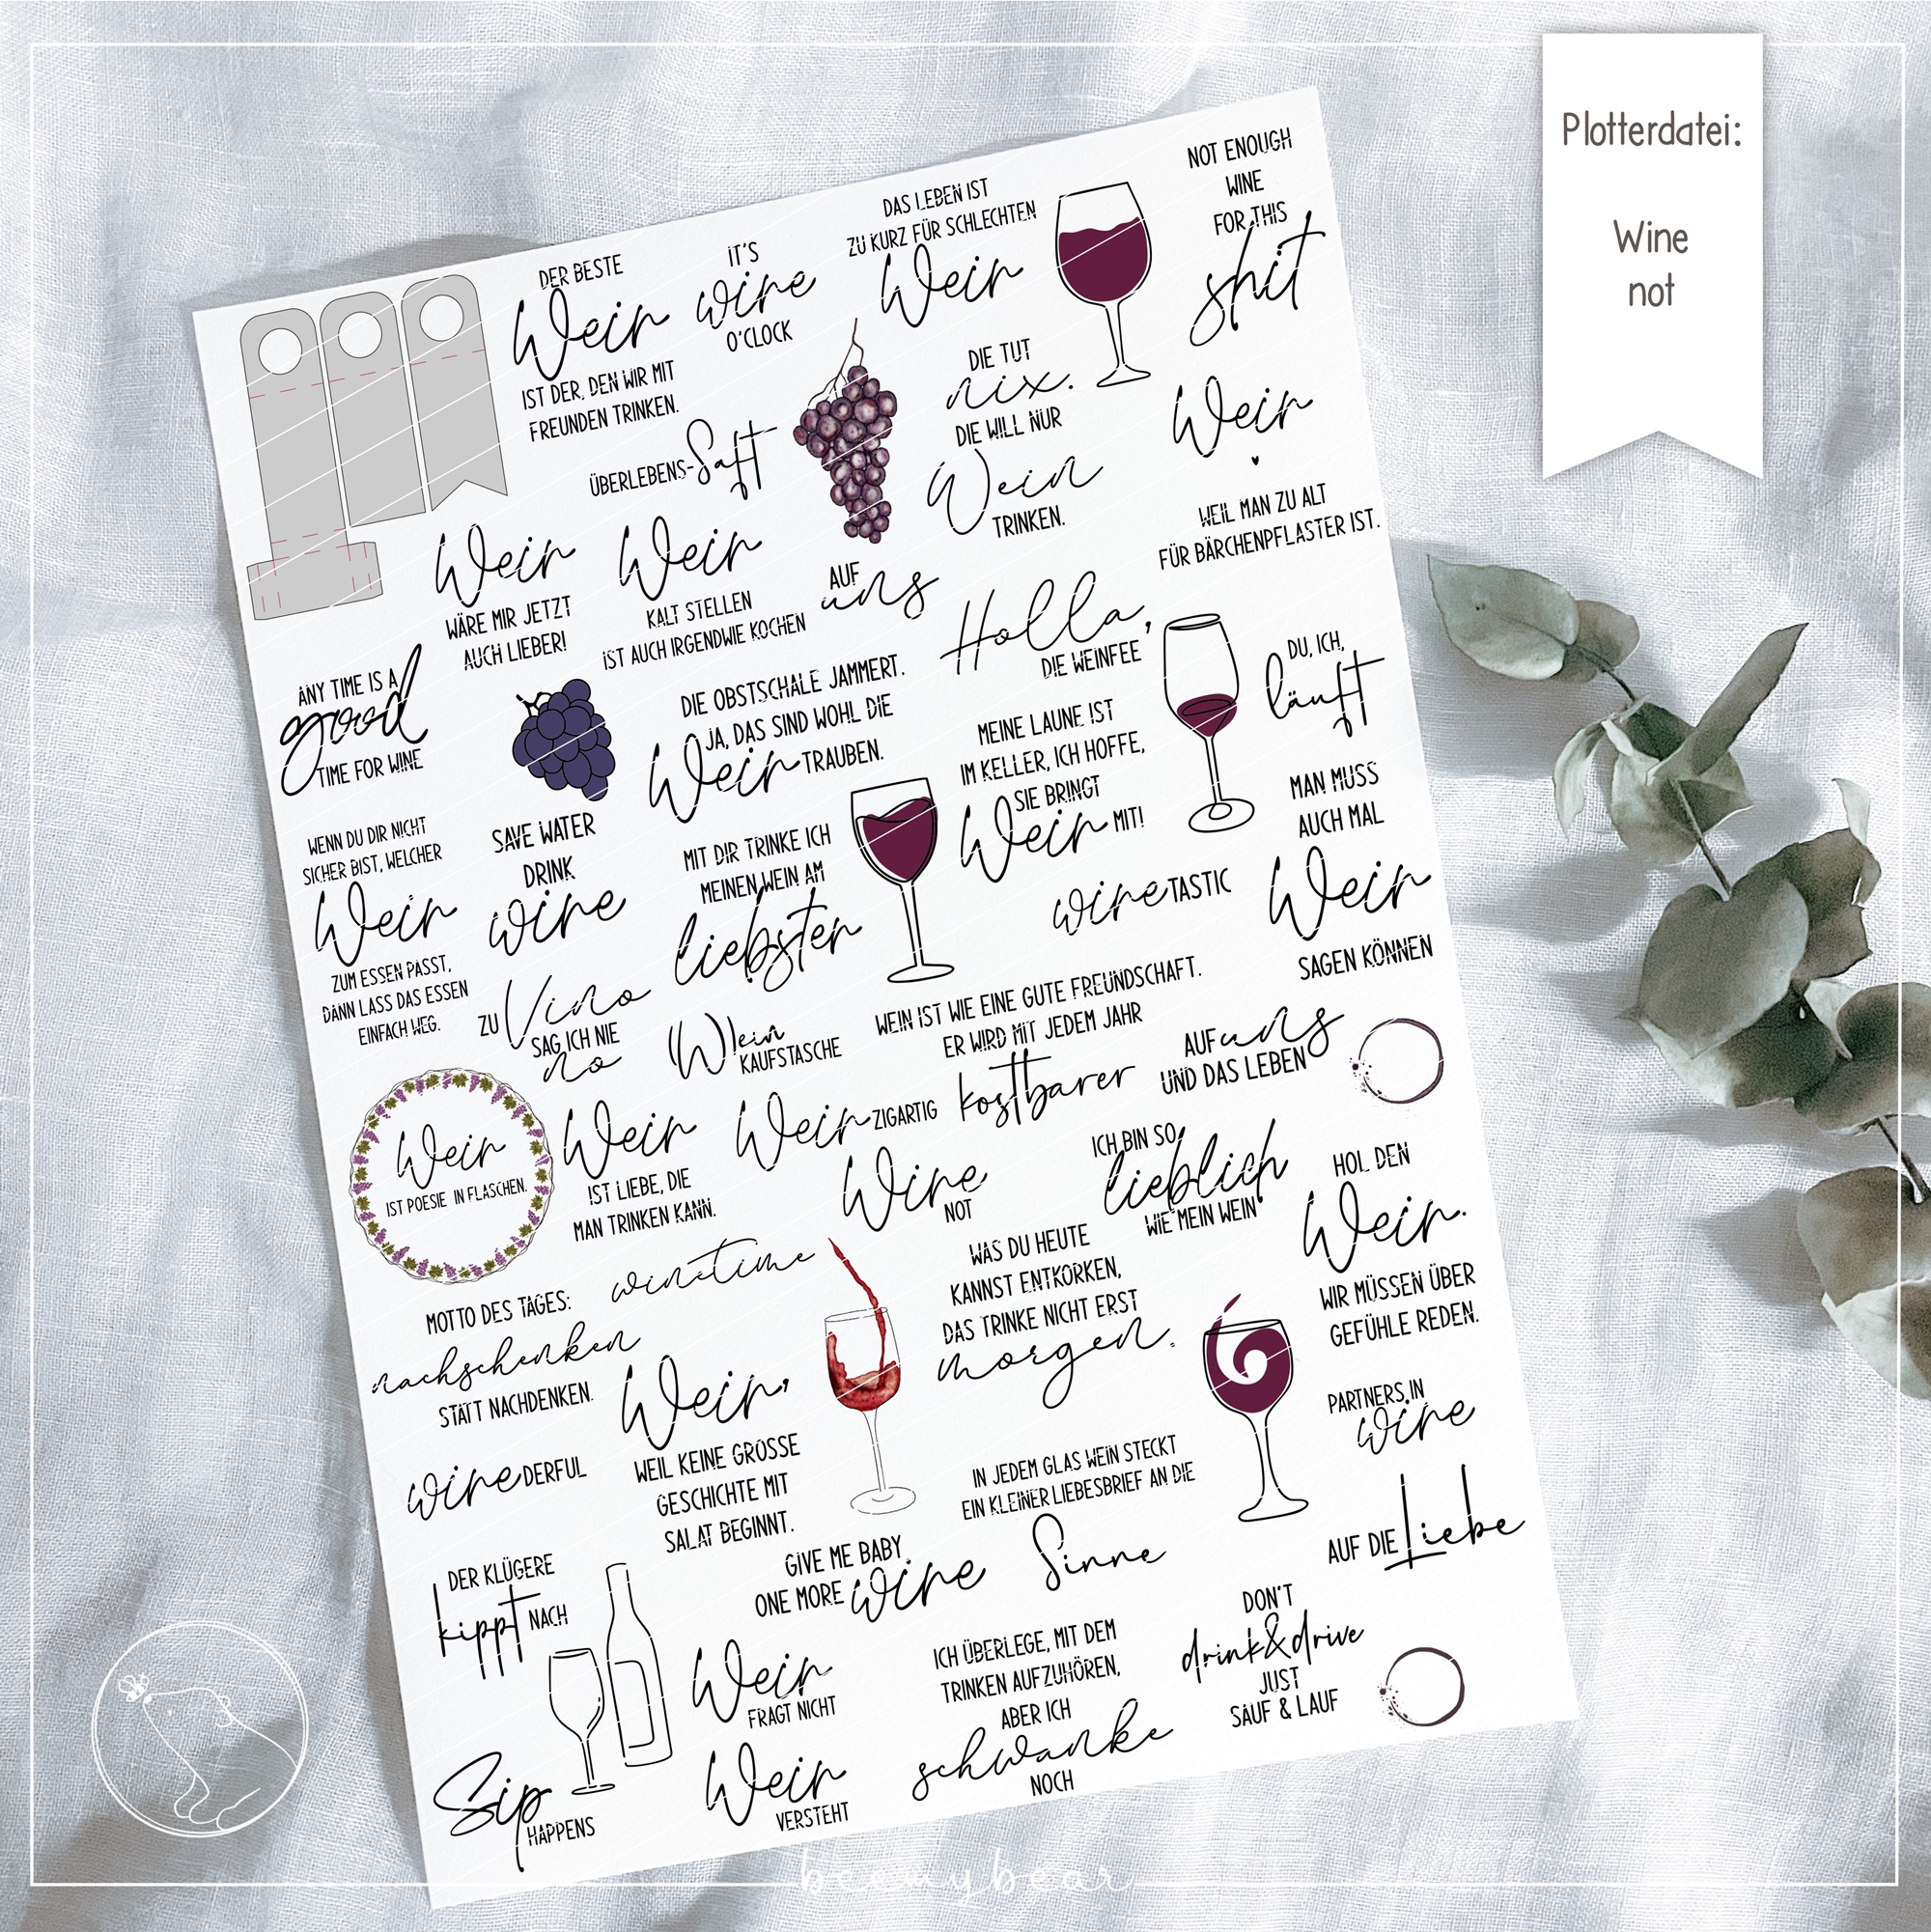 Plotterdatei:
Wine
not
NOT ENOUGH
WINE
FOR THIS
shit
DAS LEBEN IST
ZU KURZ FÜR SCHLECHTEN
Wein
IT'S
wine
O'CLOCK
DER BESTE
Wein
IST DER, DEN WIR MIT
FREUNDEN TRINKEN.
ÜBERLEBENS-Saft
DIE TUT
nix.
DIE WILL NUR
Wein
TRINKEN.
Wein
WEIL MAN ZU ALT
FÜR BÄRCHENPFLASTER IST.
Wein
WÄRE MIR JETZT
AUCH LIEBER!
Wein
KALT STELLEN
IST AUCH IRGENDWIE KOCHEN
AUF
uns
Holla,
DIE WEINFEE
DU, ICH,
läuft
ANY TIME IS A
good
TIME FOR WINE
DIE OBSTSCHALE JAMMERT.
JA, DAS SIND WOHL DIE
Wein TRAUBEN.
MEINE LAUNE IST
IM KELLER, ICH HOFFE,
SIE BRINGT
Wein MIT!
MAN MUSS
AUCH MAL
Wein
SAGEN KÖNNEN
WENN DU DIR NICHT
SICHER BIST, WELCHER
Wein
ZUM ESSEN PASST,
DANN LASS DAS ESSEN
EINFACH WEG.
SAVE WATER
DRINK
wine
MIT DIR TRINKE ICH
MEINEN WEIN AM
liebsten
wine TASTIC
ZU Vino
SAG ICH NIE
no
(W)ein
KAUFSTASCHE
WEIN IST WIE EINE GUTE FREUNDSCHAFT.
ER WIRD MIT JEDEM JAHR
kostbarer
AUF uns
UND DAS LEBEN
Wein
IST POESIE IN FLASCHEN.
Wein
IST LIEBE, DIE
MAN TRINKEN KANN.
Wein ZIGARTIG
Wine
NOT
ICH BIN SO
lieblich
WIE MEIN WEIN
HOL DEN
Wein.
WIR MÜSSEN ÜBER
GEFÜHLE REDEN.
winetime
WAS DU HEUTE
KANNST ENTKORKEN,
DAS TRINKE NICHT ERST
morgen.
MOTTO DES TAGES:
nachschenken
STATT NACHDENKEN.
Wein,
WEIL KEINE GROSSE
GESCHICHTE MIT
SALAT BEGINNT.
PARTNERS IN
wine
wine DERFUL
IN JEDEM GLAS WEIN STECKT
EIN KLEINER LIEBESBRIEF AN DIE
Sinne
AUF DIE Liebe
DER KLÜGERE
kippt NACH
GIVE ME BABY
ONE MORE wine
DON'T
drink&drive
JUST
SAUF & LAUF
Wein
FRAGT NICHT
ICH ÜBERLEGE, MIT DEM
TRINKEN AUFZUHÖREN,
ABER ICH
schwanke
NOCH
Sip
HAPPENS
Wein
VERSTEHT
beemybear